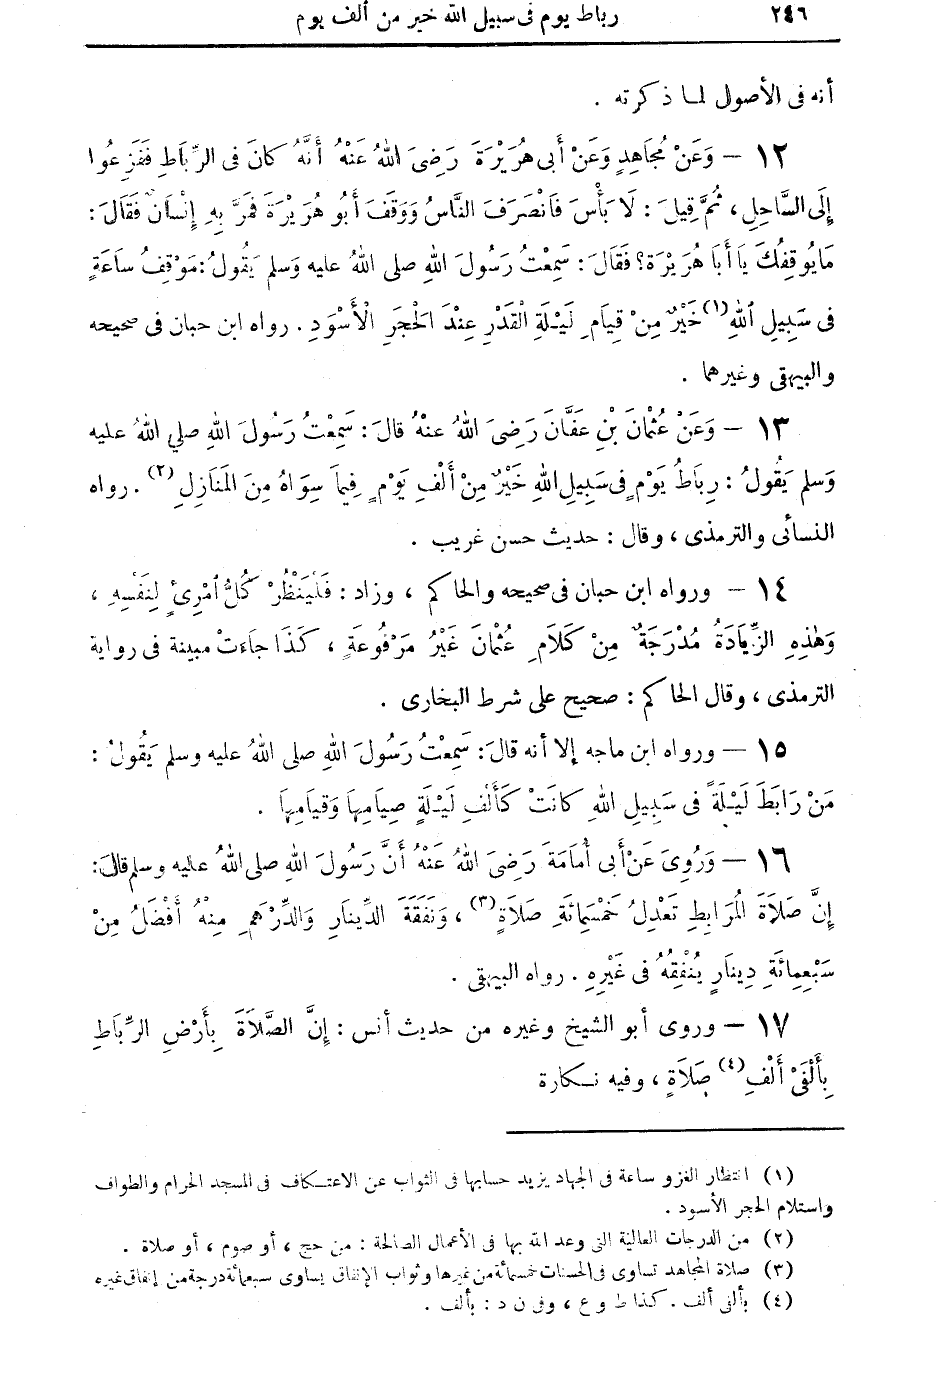 ٢٤٦ رباط يوم فى سبيل الله خير من ألف يوم
أنه فى الأصول لما ذكرته .
١٢ – وَعَنْ مُجَاهِدٍ وَعَنْ أَبِى هُرَيْرَةَ رَضِىَ اللهُ عَنْهُ أَنَّهُ كَانَ فِى الرِّبَاطِ فَفَزِعُوا
إِلَى السَّاحِلِ ، ثُمَّ قِيلَ : لَا بَأْسَ فَانْصَرَفَ النَّاسُ وَوَقَفَ أَبُو هُرَيْرَةَ فَمَرَّ بِهِ إِنْسَانٌ فَقَالَ :
مَا يُوقِفُكَ يَا أَبَا هُرَيْرَةَ ؟ فَقَالَ : سَمِعْتُ رَسُولَ اللهِ صلى اللهُ عليه وسلم يَقُولُ : مَوْقِفُ سَاعَةٍ
فِى سَبِيلِ اللهِ (١) خَيْرٌ مِنْ قِيَامِ لَيْلَةِ الْقَدْرِ عِنْدَ الْحَجَرِ الْأَسْوَدِ . رواه ابن حبان فى صحيحه
والبيهقى وغيرهما .
١٣ – وَعَنْ عُثْمَانَ بْنِ عَفَّانَ رَضِىَ اللهُ عنْهُ قَالَ : سَمِعْتُ رَسُولَ اللهِ صلي اللهُ عليه
وَسلم يَقُولُ : رِبَاطُ يَوْمٍ فِى سَبِيلِ اللهِ خَيْرٌ مِنْ أَلْفِ يَوْمٍ فِيمَا سِوَاهُ مِنَ الْمَنَازِلِ (٢) . رواه
النسائى والترمذى ، وقال : حديث حسن غريب .
١٤ – ورواه ابن حبان فى صحيحه والحاكم ، وزاد : فَلْيَنْظُرْ كُلُّ امْرِئٍ لِنَفْسِهِ ،
وَهٰذِهِ الزِّيَادَةُ مُدْرَجَةٌ مِنْ كَلَامِ عُثْمَانَ غَيْرُ مَرْفُوعَةٍ ، كَذَا جَاءَتْ مبينة فى رواية
الترمذى ، وقال الحاكم : صحيح على شرط البخارى .
١٥ – ورواه ابن ماجه إلا أنه قَالَ : سَمِعْتُ رَسُولَ اللهِ صلى اللهُ عليه وسلم يَقُولُ :
مَنْ رَابَطَ لَيْلَةً فِى سَبِيلِ اللهِ كَانَتْ كَأَلْفِ لَيْلَةٍ صِيَامِهَا وَقِيَامِهَا .
١٦ – وَرُوِىَ عَنْ أَبِى أُمَامَةَ رَضِىَ اللهُ عَنْهُ أَنَّ رَسُولَ اللهِ صلى اللهُ عليه وسلم قَالَ :
إِنَّ صَلَاةَ الْمُرَابِطِ تَعْدِلُ خَمْسَمِائَةِ صَلَاةٍ (٣) ، وَنَفَقَةَ الدِّينَارِ وَالدِّرْهَمِ مِنْهُ أَفْضَلُ مِنْ
سَبْعِمِائَةِ دِينَارٍ يُنْفِقُهُ فِى غَيْرِهِ . رواه البيهقى .
١٧ – وروى أبو الشيخ وغيره من حديث أنس : إِنَّ الصَّلَاةَ بِأَرْضِ الرِّبَاطِ
بِأَلْفَىْ أَلْفِ (٤) صَلَاةٍ ، وفيه نكارة
(١) انتظار الغزو ساعة فى الجهاد يزيد حسابها فى الثواب عن الاعتكاف فى المسجد الحرام والطواف
واستلام الحجر الأسود .
(٢) من الدرجات العالية التى وعد الله بها فى الأعمال الصالحة : من حج ، أو صوم ، أو صلاة .
(٣) صلاة المجاهد تساوى فى الحسنات خمسمائة من غيرها وثواب الإنفاق يساوى سبعمائة درجة من إنفاق غيره
(٤) بألفى ألف . كذا ط و ع ، وفى ن د : بألف .